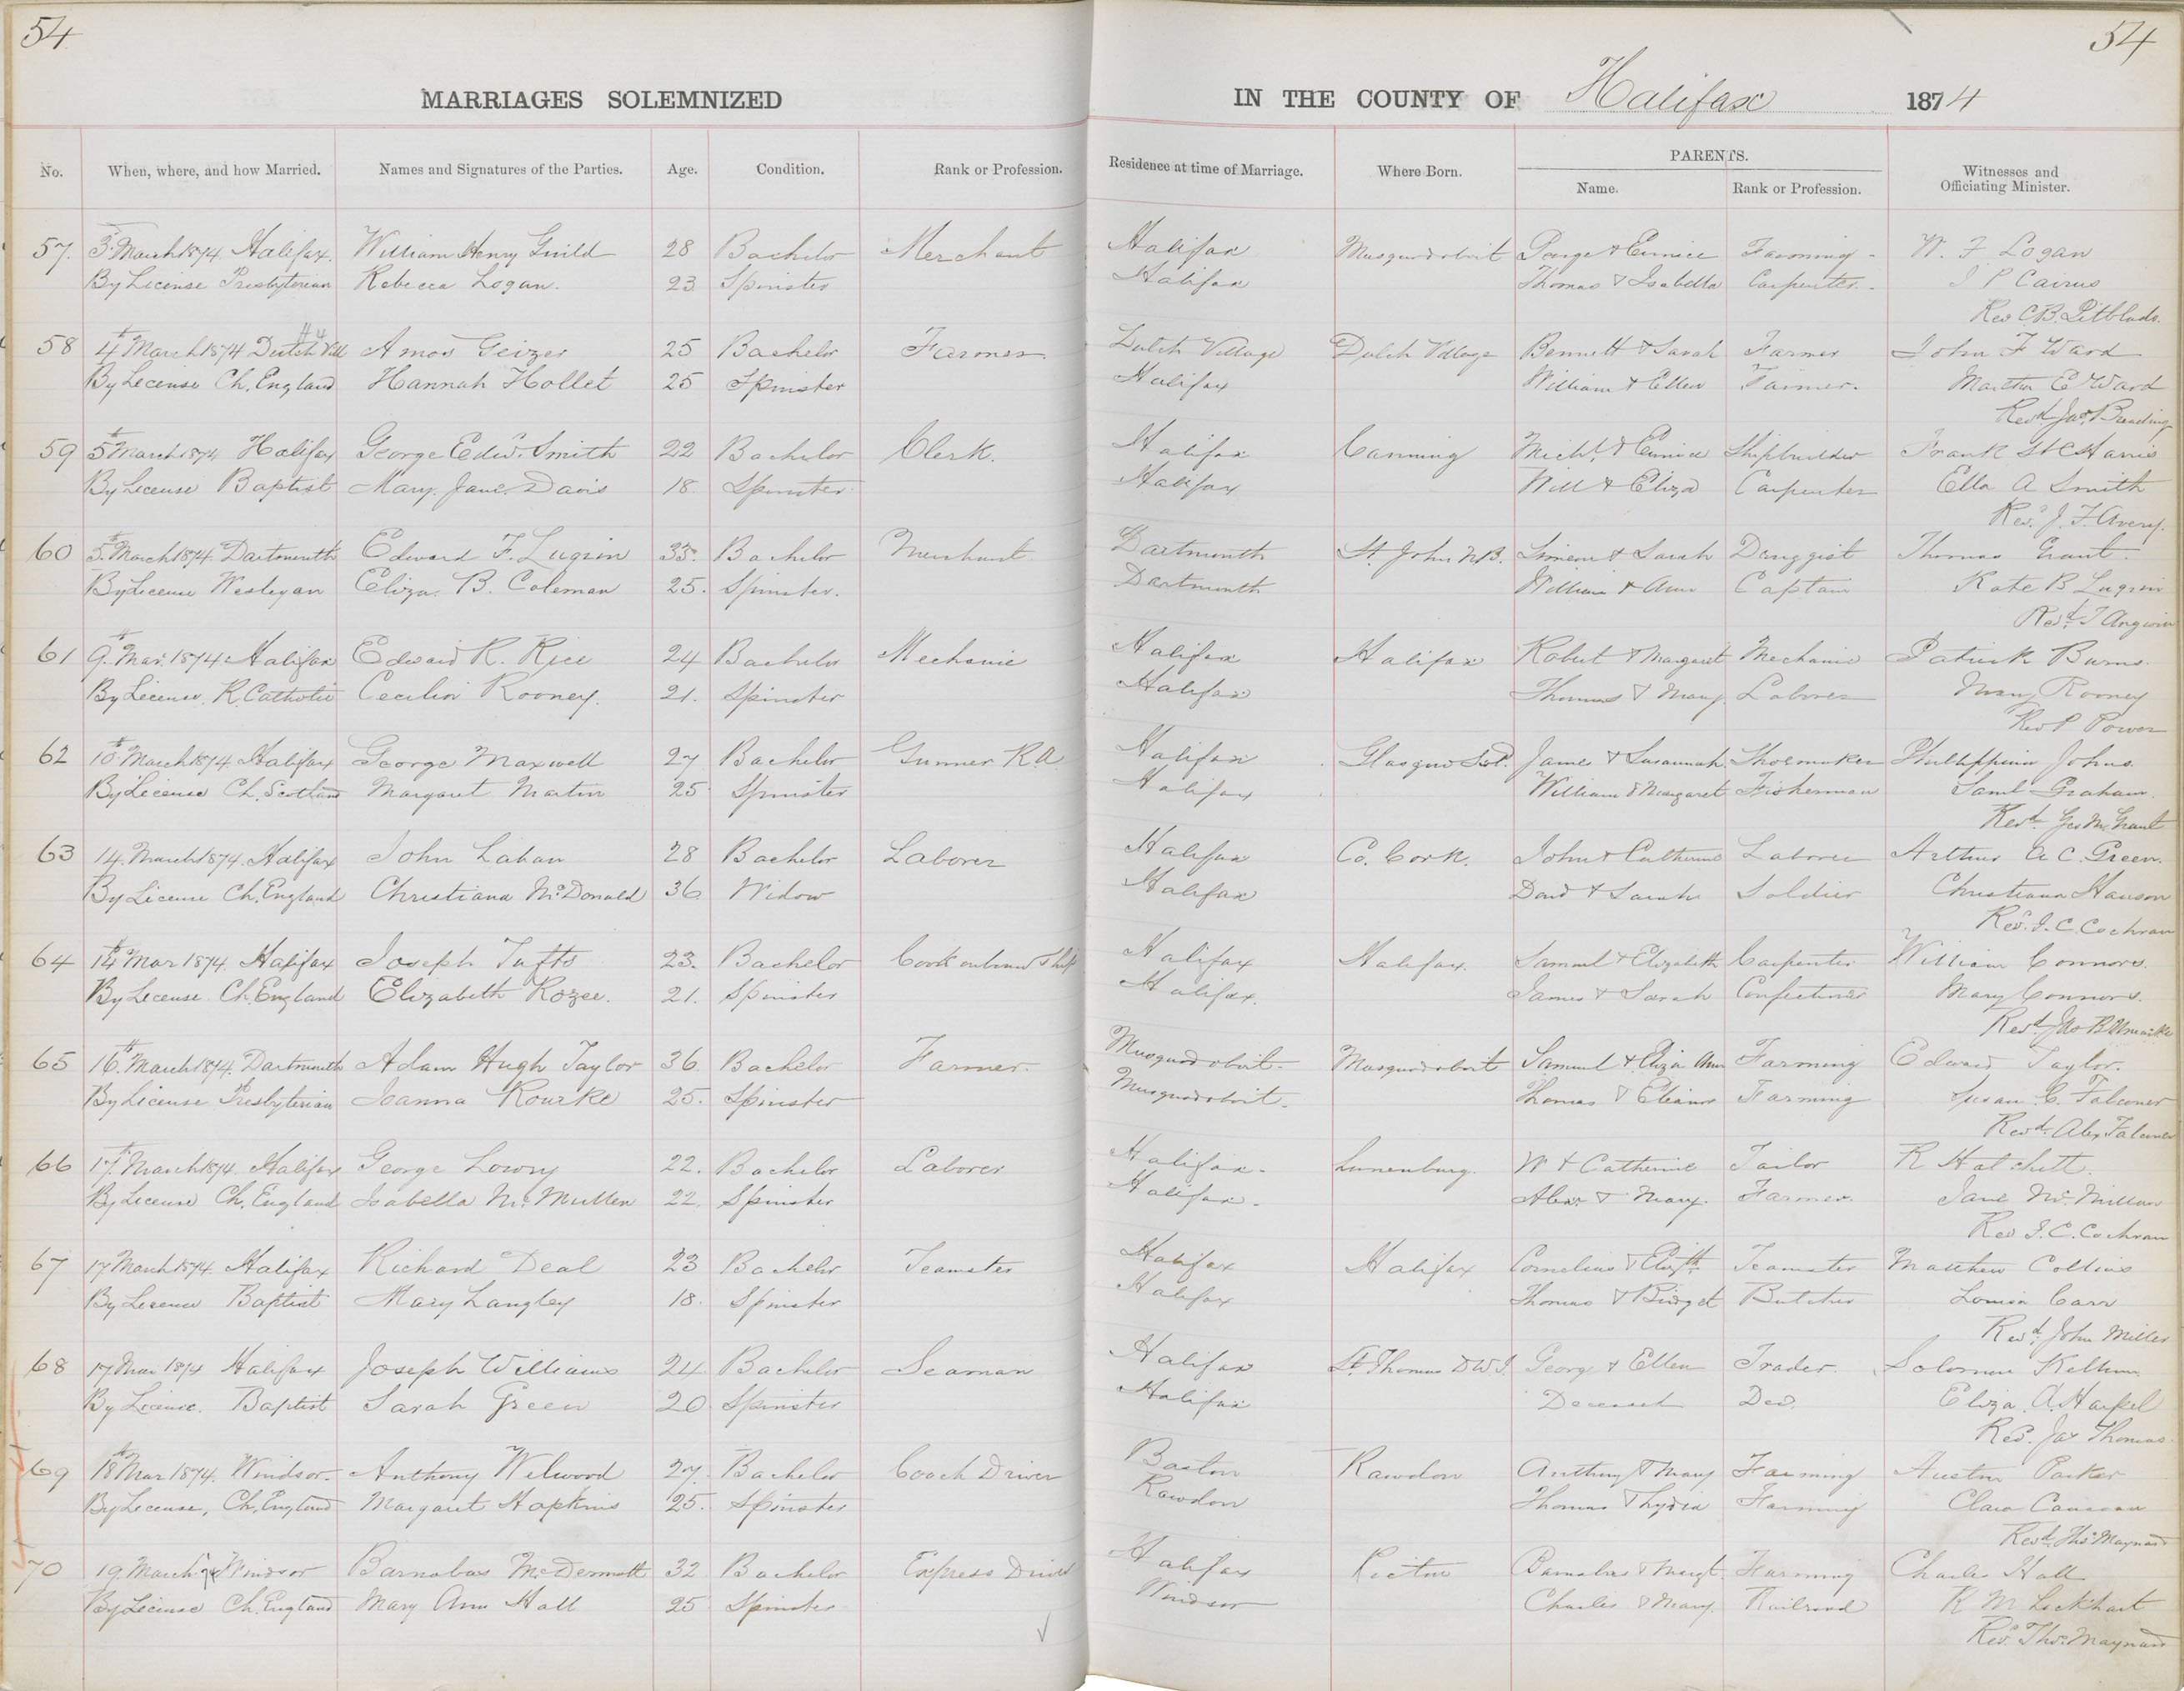 54
54
MARRIAGES SOLEMNIZED IN THE COUNTY OF Halifax 1874
No. When, where, and how Married. Names and Signatures of the Parties. Age. Condition. Rank or Profession. Residence at time of Marriage. Where Born. PARENTS. Name. Rank or Profession. Witnesses and Officiating Minister.
57. 3 March 1874 Halifax. William Henry Guild 28 Bachelor Merchant Halifax Musquodoboit George & Eunice Farming W. F. Logan
By License Presbyterian Rebecca Logan. 23 Spinster Halifax Thomas & Isabella Carpenter J P Cairns
Rev C.B. Pitblado.
58 4th March 1874 Dutch Vill Amos Geizer 25 Bachelor Farmer Dutch Village Dutch Village Bennett & Sarah Farmer John F Ward
By License Ch. England Hannah Hollet 25 Spinster Halifax William & Ellen Farmer. Martha E Ward
Revd Jas. Breading
59 5th March 1874 Halifax George Edwd. Smith 22 Bachelor Clerk. Halifax Canning Michl. & Eunice Shipbuilder Frank St C Harris
By License Baptist Mary Jane Davis 18 Spinster Halifax Will & Eliza Carpenter Ella A Smith
Rev. J. F. Avery.
60 5th March 1874 Dartmouth Edward F. Lugrin 33. Bachelor Merchant Dartmouth St. John N.B. Simeon & Sarah Druggist Thomas Grant.
By License Wesleyan Eliza. B. Coleman 25. Spinster. Dartmouth William & Ann Captain Kate B Lugrin
Revd. T Angwin
61 9th Mar. 1874 Halifax Edward R. Rice 24 Bachelor Mechanic Halifax Halifax Robert & Margaret Mechanic Patrick Burns.
By License. R. Catholic Cecilia Rooney. 21. Spinster Halifax Thomas & Mary. Laborer Mary Rooney
Rev P Power
62 10th March 1874 Halifax George Maxwell 27 Bachelor Gunner R.A. Halifax Glasgow Scot. James & Susannah Shoemaker Phillippina Johns
By License Ch. Scotland Margaret Martin 25 Spinster Halifax William & Margaret Fisherman Saml Graham.
Revd. Geo M. Grant
63 14. March 1874. Halifax John Lahan 28 Bachelor Laborer Halifax Co. Cork. John & Catherine Laborer Arthur A C. Green.
By License Ch. England Christiana McDonald 36 Widow Halifax David & Sarah Soldier Christiana Hanson
Rev. J. C. Cochran
64 14th Mar 1874. Halifax Joseph Tufts 23. Bachelor Cook on board Ship Halifax Halifax. Samuel & Elizabeth Carpenter William Connors.
By License Ch. England Elizabeth Rozee. 21. Spinster Halifax. James & Sarah Confectioner Mary Connors.
Revd. Jno B Uniacke
65 16th March 1874. Dartmouth Adam Hugh Taylor 36. Bachelor Farmer. Musquodoboit. Musquodoboit Samuel & Eliza Ann Farming Edward Taylor.
By License Presbyterian Joanna Rourke 25. Spinster Musquodoboit. Thomas & Eleanor Farming Susan C. Falconer
Revd. Alex Falconer
66 17th March 1874. Halifax George Lowry 22. Bachelor Laborer Halifax. Lunenburg. W & Catherine Tailor R Hatchett.
By License Ch. England Isabella McMullen 22. Spinster Halifax. Alexr. & Mary. Farmer. Jane McMillan
Rev J. C. Cochran
67 17 March 1874. Halifax Richard Deal 23 Bachelor Teamster Halifax Halifax Cornelius & Elizth. Teamster Matthew Collins
By License Baptist Mary Langley 18. Spinster Halifax Thomas & Bridget Butcher Louisa Carr
Revd. John Miller
68 17 Mar 1874 Halifax Joseph Williams 24 Bachelor Seaman Halifax St. Thomas D W I. George & Ellen Trader. Solomon Kellum
By License. Baptist Sarah Green 20 Spinster Halifax Deceased Decd. Eliza. A.
Rev. Jas Thomas
69 18th Mar 1874. Windsor. Anthony Welwood 27. Bachelor Coach Driver Boston Rawdon Anthony & Mary Farming Austin Parker
By License, Ch. England Margaret Hopkins 25. Spinster Rawdon Thomas & Lydia Farming Clara
Revd. Thos. Maynard
70 19 March 74 Windsor Barnabas McDermott 32 Bachelor Express Driver Halifax Pictou Barnabas & Margt. Farming Charles Hall
By License Ch. England Mary Ann Hall 25 Spinster Windsor Charles & Mary. Railroad R M Lockhart
Rev. Thos. Maynard